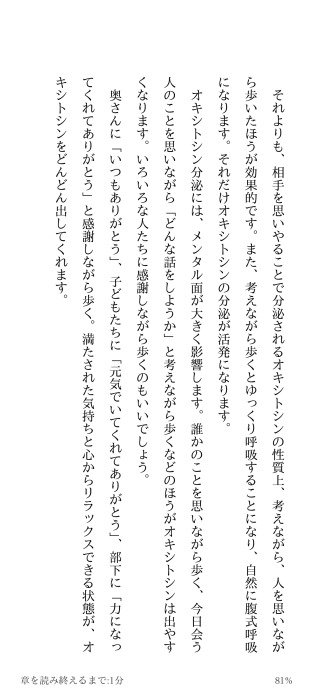 それよりも、相手を思いやることで分泌されるオキシトシンの性質上、考えながら、人を思いなが
ら歩いたほうが効果的です。また、考えながら歩くとゆっくり呼吸することになり、自然に腹式呼吸
になります。それだけオキシトシンの分泌が活発になります。
　オキシトシン分泌には、メンタル面が大きく影響します。誰かのことを思いながら歩く、今日会う
人のことを思いながら「どんな話をしようか」と考えながら歩くなどのほうがオキシトシンは出やす
くなります。いろいろな人たちに感謝しながら歩くのもいいでしょう。
　奥さんに「いつもありがとう」、子どもたちに「元気でいてくれてありがとう」、部下に「力になっ
てくれてありがとう」と感謝しながら歩く。満たされた気持ちと心からリラックスできる状態が、オ
キシトシンをどんどん出してくれます。
章を読み終えるまで:1分
81%